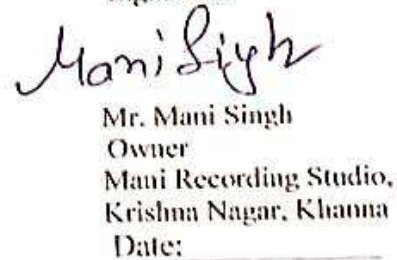 Mani Sigh
Mr. Mani Singh
Owner
Mani Recording Studio,
Krishna Nagar, Khanna
Date: